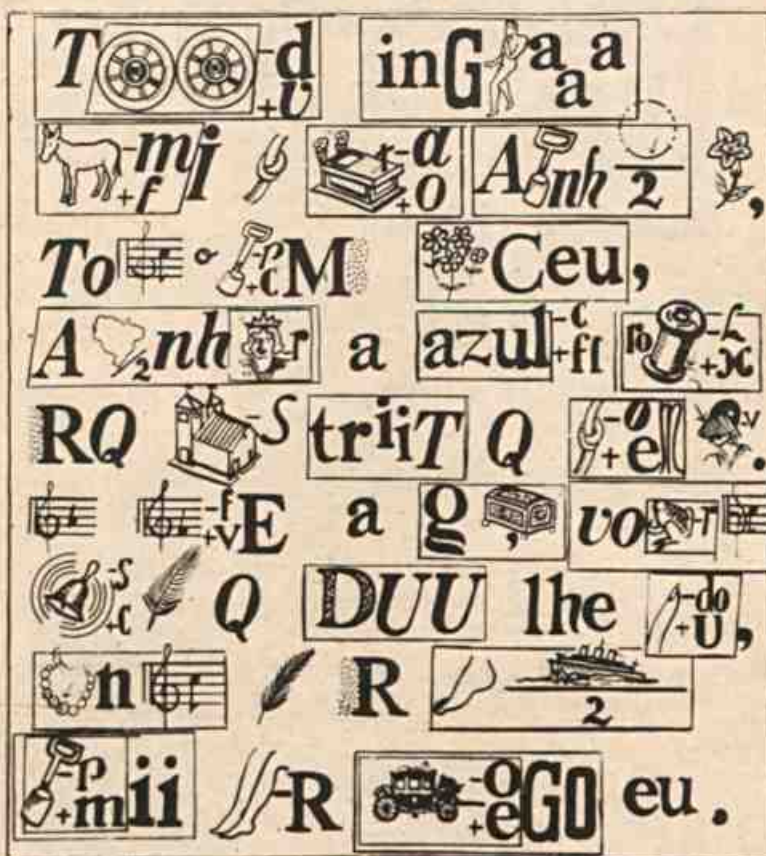 T -d +v inG a a a
-m +f i r -a +o A nh 2 ,
To -p +c M Ceu,
A 2 nh -r a azul -c +fl ro -L +x
RQ -S triiT Q -o +e -v .
-f +v E a g , vo -r
-S +C Q DUU lhe -do +U ,
n R 2
-p +m ii -R -o +e GO eu .